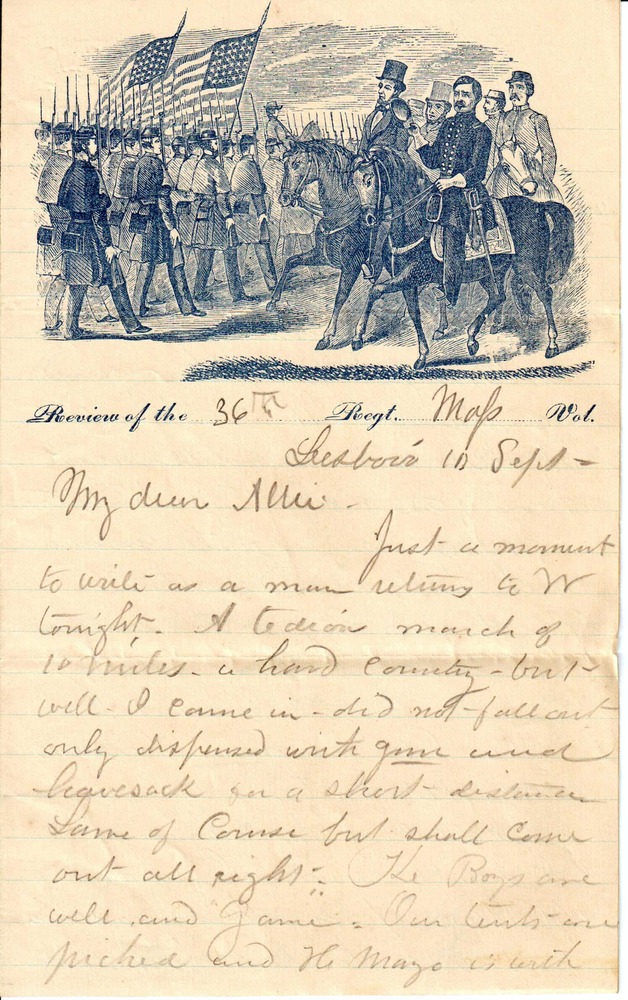 Review of the 36th Regt. Mass Vol.
Leesboro 10 Sept -
My dear Allie -
Just a moment
to write as a man returns to W
tonight. A tedious march of
10 miles - a hard country - but
well - I came in - did not fall out
only dispensed with gun and
havesack for a short distance
Lame of Course but shall come
out all right - The Boys are
well and "Game". Our tents are
picked and H Mayo is with